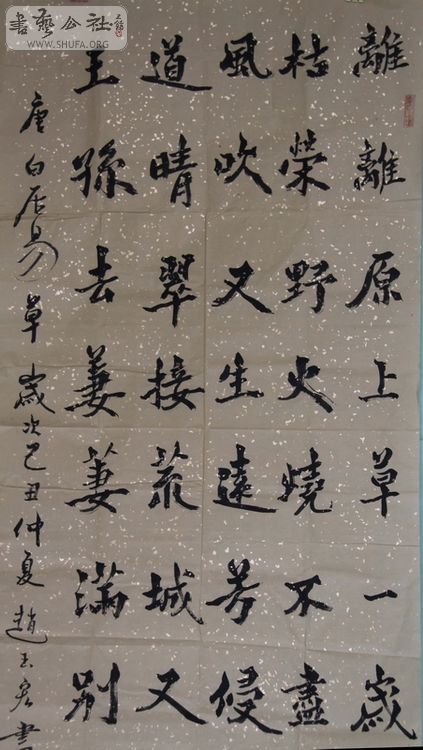 書藝公社
WWW.SHUFA.ORG
離離原上草一歲
枯榮野火燒不盡
風吹又生遠芳侵
道晴翠接荒城又
王孫去萋萋滿別
唐白居易草歲次己丑仲夏趙玉書